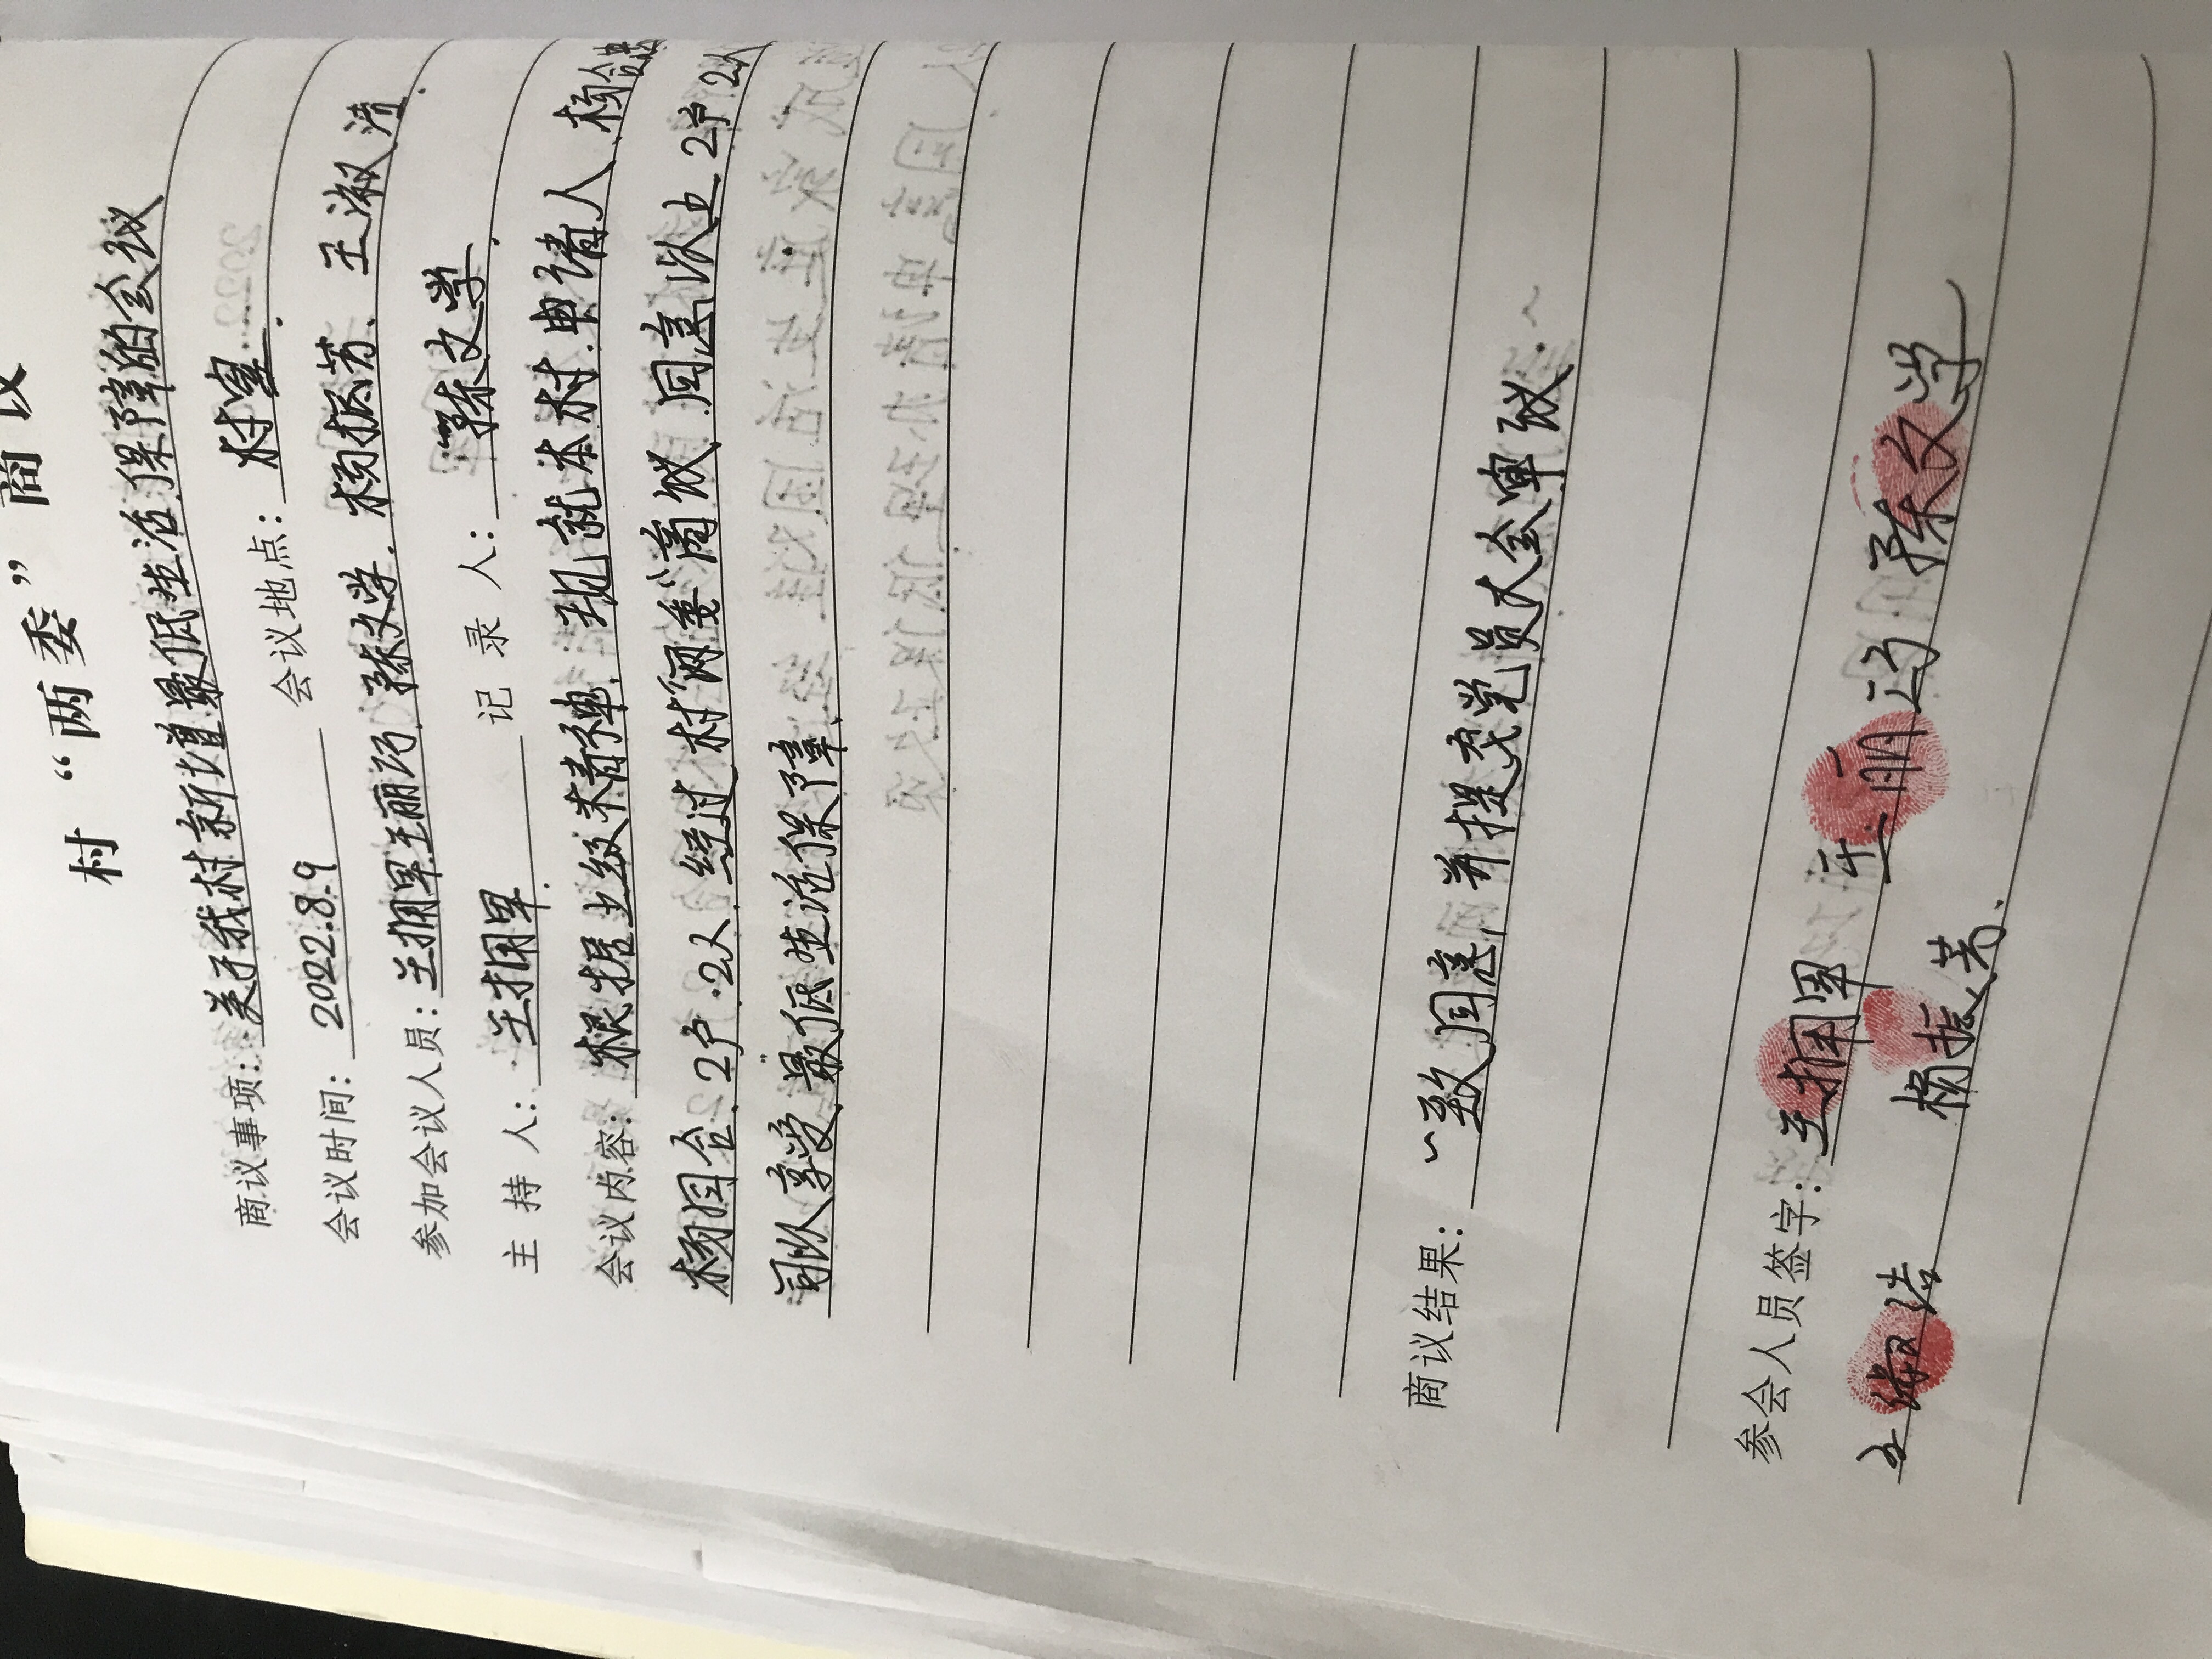 村“两委”商议
商议事项：关于我村新增最低生活保障的会议
会议时间：2022.8.9 会议地点：村室.
参加会议人员：王拥军.王丽巧.陈文学.杨振芳、王淑洁.
主持人：王拥军. 记录人：陈文学.
会议内容：根据上级精神.现就本村.申请人.杨合
杨同合.2户.2人.经过村“两委”商议.同意以上2户2人
可以享受最低生活保障.
商议结果：一致同意,并提交党员大会审议.
参会人员签字：王拥军 王丽巧 陈文学
王淑洁 杨振芳.